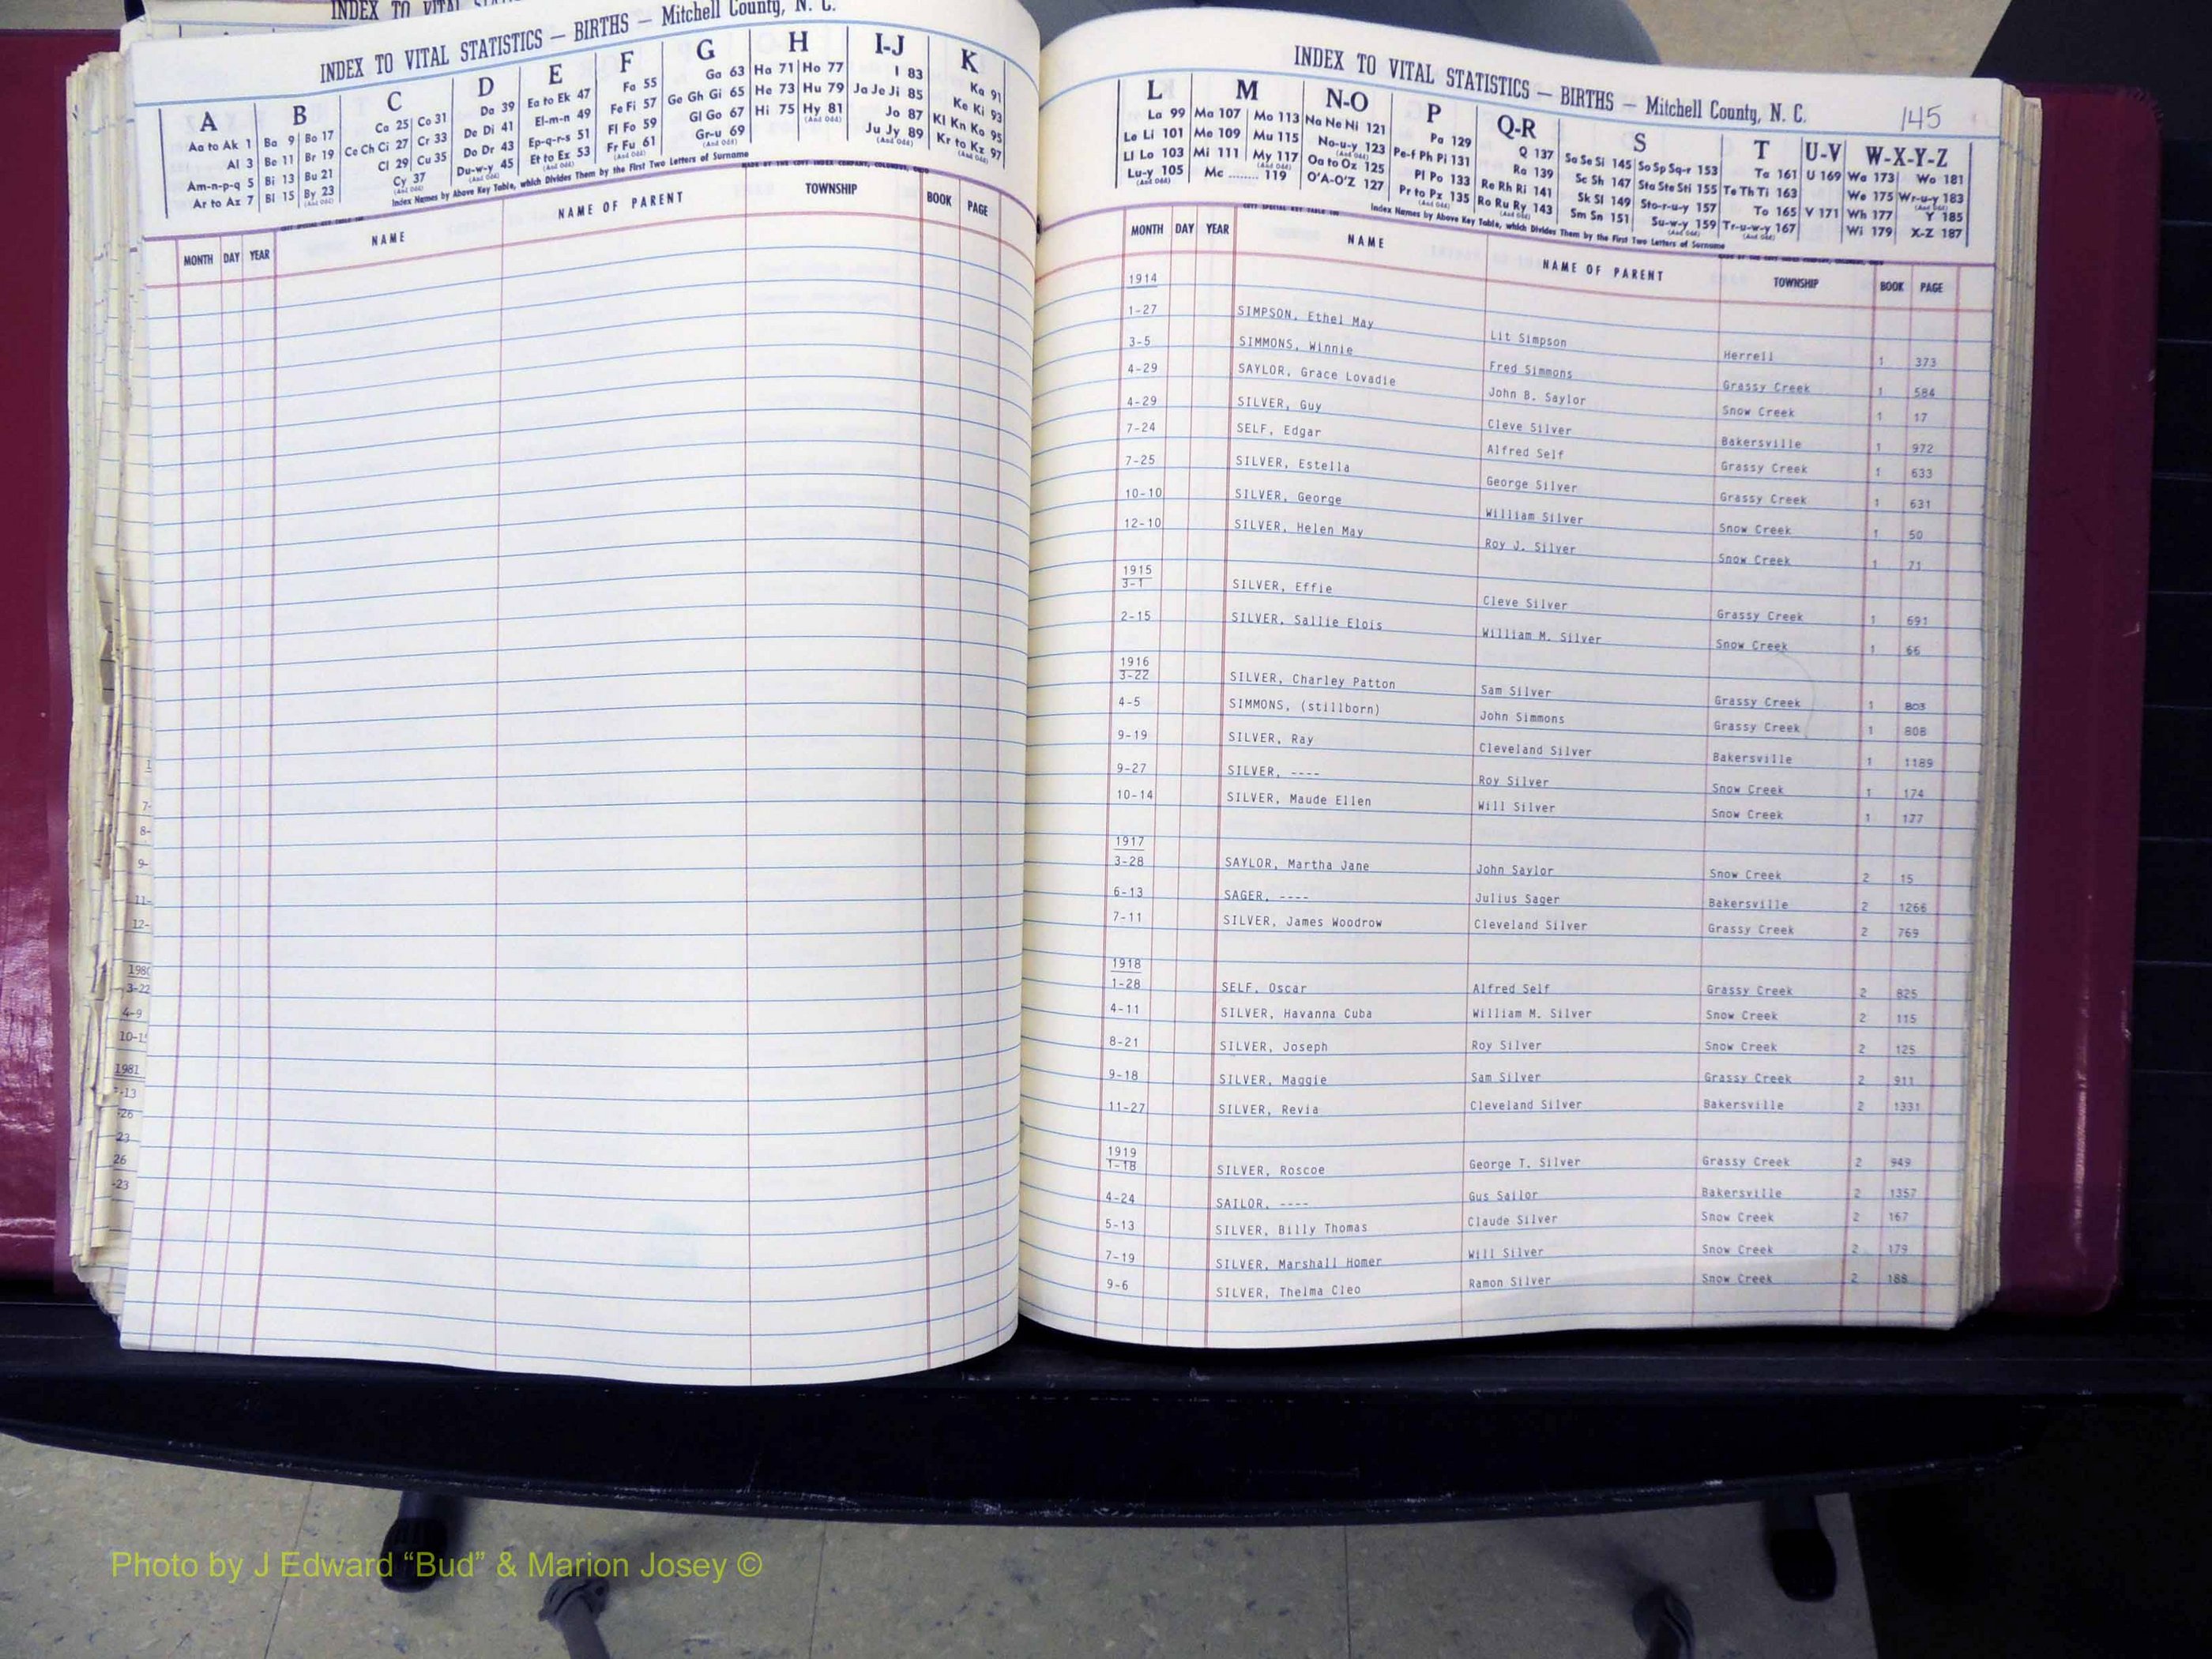 INDEX TO VITAL
INDEX TO VITAL STATISTICS — BIRTHS — Mitchell County, N. C.
A B C D E F G H I-J K
Aa to Ak 1 Ba 9 Bo 17 Ca 25 Co 31 Da 39 Ea to Ek 47 Fa 55 Ga 63 Ha 71 Ho 77 I 83 Ka 91
Al 3 Be 11 Br 19 Ce Ch Ci 27 Cr 33 De Di 41 El-m-n 49 Fe Fi 57 Ge Gh Gi 65 He 73 Hu 79 Ja Je Ji 85 Ke Ki 93
Am-n-p-q 5 Bi 13 Bu 21 Cl 29 Cu 35 Do Dr 43 Ep-q-r-s 51 Fl Fo 59 Gl Go 67 Hi 75 Hy 81 (And Odd) Jo 87 Kl Kn Ko 95
Ar to Az 7 Bl 15 By 23 (And Odd) Cy 37 (And Odd) Du-w-y 45 (And Odd) Et to Ez 53 (And Odd) Fr Fu 61 (And Odd) Gr-u 69 (And Odd) Ju Jy 89 (And Odd) Kr to Kz 97 (And Odd)
Index Names by Above Key Table, which Divides Them by the First Two Letters of Surname
MONTH DAY YEAR NAME NAME OF PARENT TOWNSHIP BOOK PAGE
1
7-
8-
9-
11-
12-
3-22
4-9
1981
-13
-26
23
26
-23
INDEX TO VITAL STATISTICS — BIRTHS — Mitchell County, N. C.
145
L M N-O P Q-R S T U-V W-X-Y-Z
La 99 Ma 107 Mo 113 Na Ne Ni 121 Pa 129 Q 137 Sa Se Si 145 So Sp Sq-r 153 Ta 161 U 169 Wa 173 Wo 181
Le Li 101 Me 109 Mu 115 No-u-y 123 (And Odd) Pe-f Ph Pi 131 Ra 139 Sc Sh 147 Sta Ste Sti 155 Te Th Ti 163 We 175 Wr-u-y 183 (And Odd)
Ll Lo 103 Mi 111 My 117 (And Odd) Oa to Oz 125 Pl Po 133 Re Rh Ri 141 Sk Sl 149 Sto-r-u-y 157 To 165 V 171 Wh 177 Y 185
Lu-y 105 (And Odd) Mc ........ 119 O'A-O'Z 127 Pr to Pz 135 (And Odd) Ro Ru Ry 143 (And Odd) Sm Sn 151 Su-w-y 159 (And Odd) Tr-u-w-y 167 (And Odd) Wi 179 X-Z 187
Index Names by Above Key Table, which Divides Them by the First Two Letters of Surname
MONTH DAY YEAR NAME NAME OF PARENT TOWNSHIP BOOK PAGE
1914
1-27 SIMPSON, Ethel May Lit Simpson Herrell 1 373
3-5 SIMMONS, Winnie Fred Simmons Grassy Creek 1 584
4-29 SAYLOR, Grace Lovadie John B. Saylor Snow Creek 1 17
4-29 SILVER, Guy Cleve Silver Bakersville 1 972
7-24 SELF, Edgar Alfred Self Grassy Creek 1 633
7-25 SILVER, Estella George Silver Grassy Creek 1 631
10-10 SILVER, George William Silver Snow Creek 1 50
12-10 SILVER, Helen May Roy J. Silver Snow Creek 1 71
1915
3-1 SILVER, Effie Cleve Silver Grassy Creek 1 691
2-15 SILVER, Sallie Elois William M. Silver Snow Creek 1 66
1916
3-22 SILVER, Charley Patton Sam Silver Grassy Creek 1 803
4-5 SIMMONS, (stillborn) John Simmons Grassy Creek 1 808
9-19 SILVER, Ray Cleveland Silver Bakersville 1 1189
9-27 SILVER, ---- Roy Silver Snow Creek 1 174
10-14 SILVER, Maude Ellen Will Silver Snow Creek 1 177
1917
3-28 SAYLOR, Martha Jane John Saylor Snow Creek 2 15
6-13 SAGER, ---- Julius Sager Bakersville 2 1266
7-11 SILVER, James Woodrow Cleveland Silver Grassy Creek 2 769
1918
1-28 SELF, Oscar Alfred Self Grassy Creek 2 825
4-11 SILVER, Havanna Cuba William M. Silver Snow Creek 2 115
8-21 SILVER, Joseph Roy Silver Snow Creek 2 125
9-18 SILVER, Maggie Sam Silver Grassy Creek 2 911
11-27 SILVER, Revia Cleveland Silver Bakersville 2 1331
1919
1-18 SILVER, Roscoe George T. Silver Grassy Creek 2 949
4-24 SAILOR, ---- Gus Sailor Bakersville 2 1357
5-13 SILVER, Billy Thomas Claude Silver Snow Creek 2 167
7-19 SILVER, Marshall Homer Will Silver Snow Creek 2 179
9-6 SILVER, Thelma Cleo Ramon Silver Snow Creek 2 188
Photo by J Edward “Bud” & Marion Josey ©